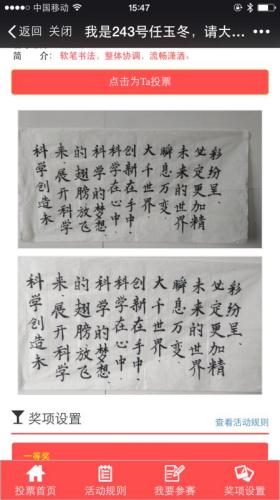 中国移动 15:47
返回 关闭 我是243号任玉冬，请大... 
简 介： 软笔书法，整体协调，流畅潇洒。
点击为Ta投票
科学创造未
来、展开科学
的翅膀放飞
科学的梦想、
科学在心中、
创新在手中、
大千世界
瞬息万变、
未来的世界
必定更加精
彩纷呈、
科学创造未
来、展开科学
的翅膀放飞
科学的梦想、
科学在心中、
创新在手中、
大千世界
瞬息万变、
未来的世界
必定更加精
彩纷呈、
奖项设置 查看活动规则
一等奖
投票首页 活动规则 我要参赛 奖项设置